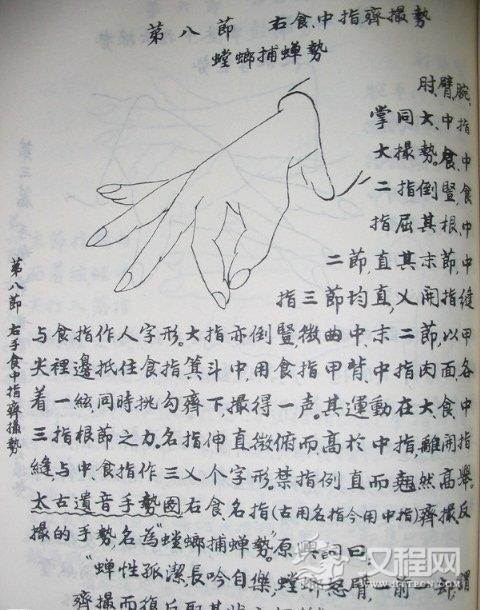 第八節 右食、中指齊撮勢
螳螂捕蟬勢
肘、臂、腕、
掌同大、中指
大撮勢。食、中
二指倒豎，食
指屈其根、中
二節，直其末節，中
指三節均直，乂開指縫
與食指作人字形。大指亦倒豎，微曲中、末二節，以甲
尖裡邊抵住食指箕斗中，用食指甲背、中指肉面，各
着一絃，同時挑勾齊下，撮得一声。其運動在大、食、中
三指根節之力。名指伸直微俯而高於中指，離開指
縫，与中、食指作三乂个字形。禁指例直而翹然高舉。
太古遺音手勢圖右食、名指（古用名指今用中指）齊撮，反
撮的手勢，名為“螳螂捕蟬勢”。原興詞曰：
“蟬性孤潔長吟自樂，螳螂怒臂一前一却，謂
齊撮而復反取其状
第八節 右手食中指齊撮勢
汉程网